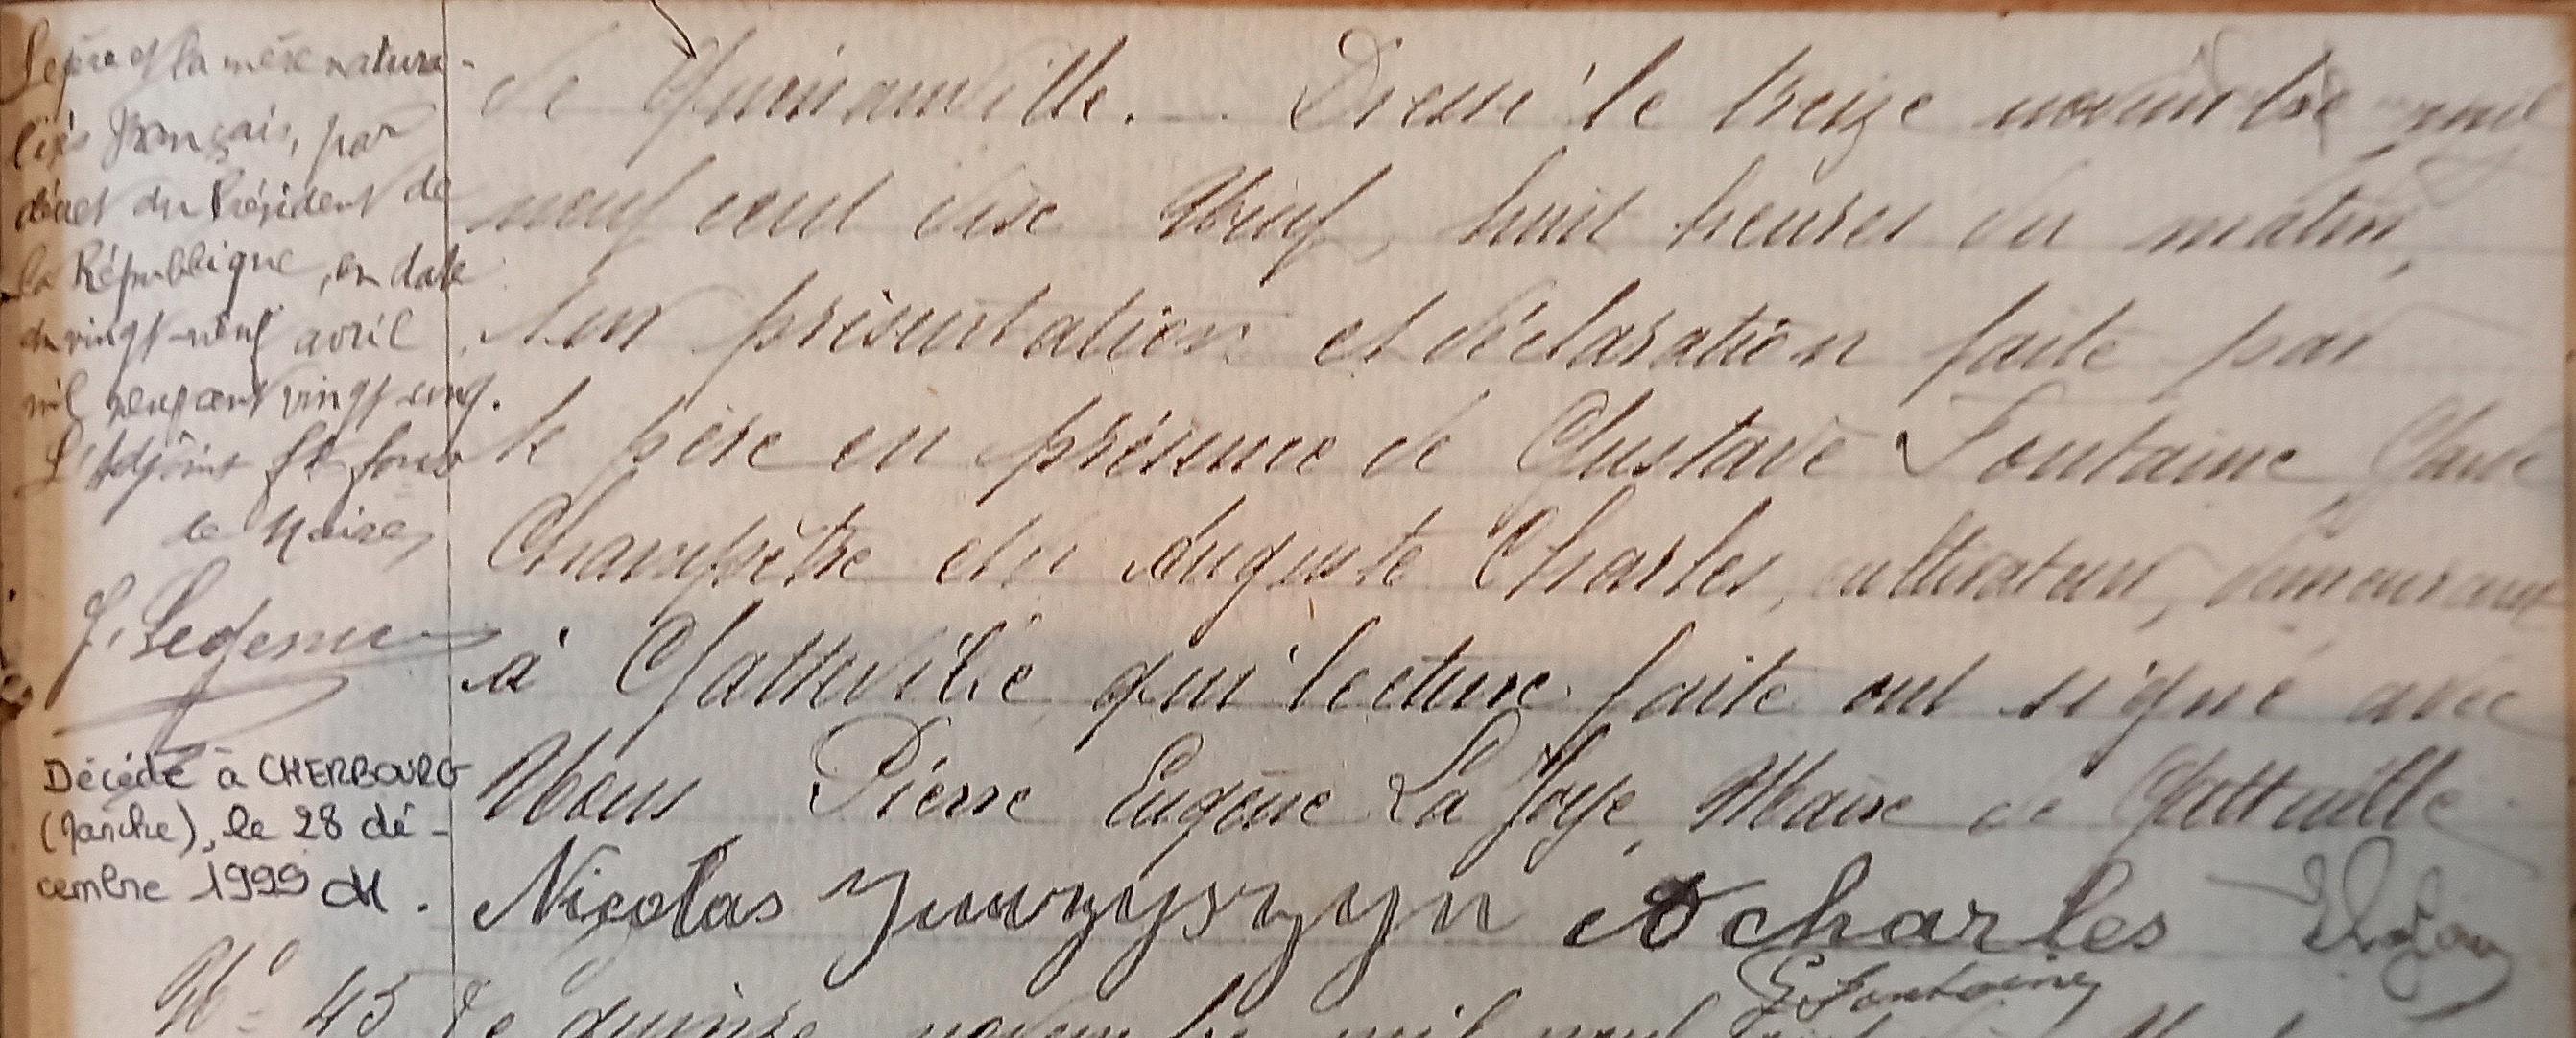 Le père et la mère natura-
lisés français, par
décret du Président de
la République, en date
du vingt-neuf avril
mil neuf cent vingt cinq.
L'Adjoint ff fons
le Maire,
Décédé à CHERBOURG
(Manche), le 28 dé-
cembre 1999
de Dressé le treize novembre mil
neuf cent dix Neuf, huit heures du matin,
Sur présentation et déclaration faite par
le père en présence de Gustave Fontaine, Garde
Champêtre et Auguste Charles, cultivateur, demeurant
à Gatteville qui lecture faite ont signé avec
Nous Pierre Eugène La Joye, Maire de Gatteville
Nicolas A Charles
G Fontaine
Nº 45 Le quinze novembre mil neuf cent